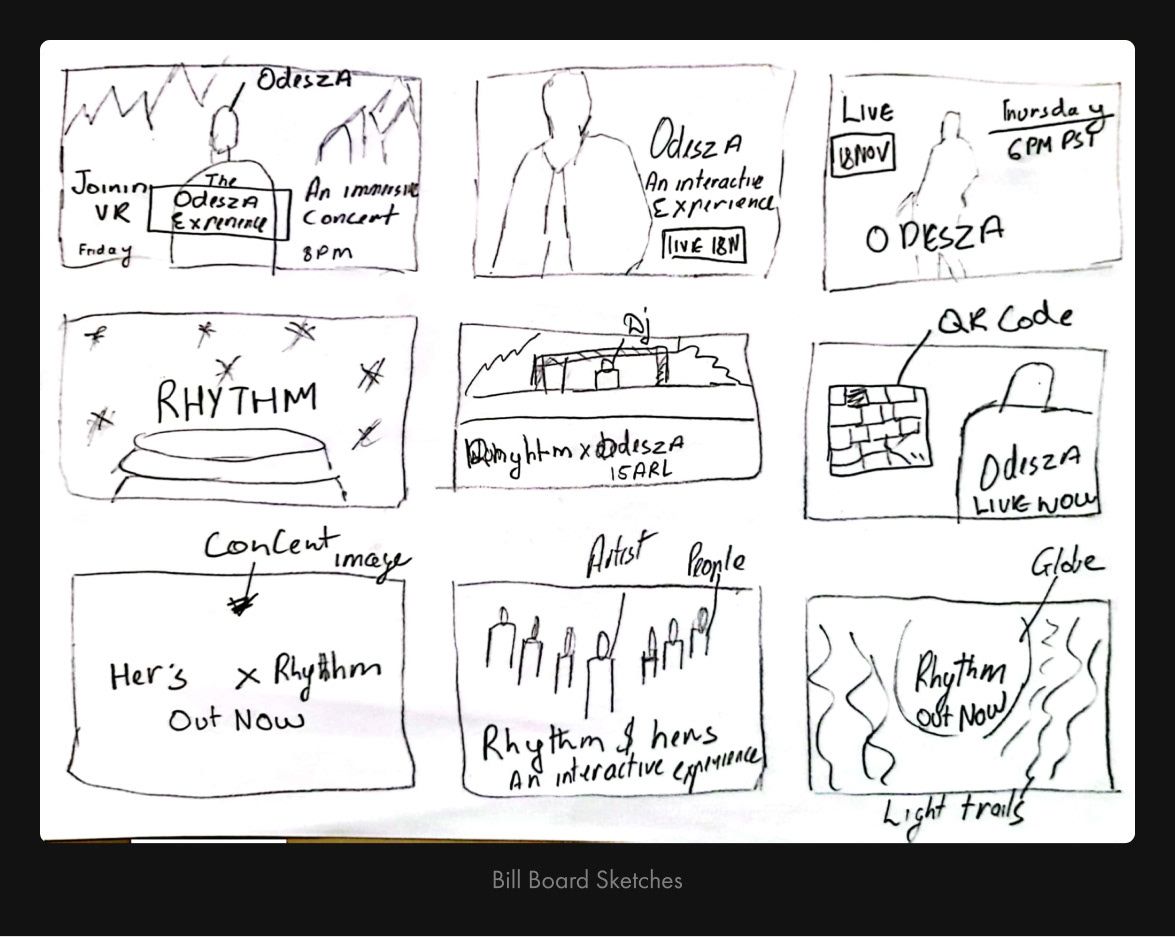 OdeszA
Join in
VR
The
OdeszA
Experience
An immersive
Concert
Friday
8PM
OdeszA
An interactive
Experience
LIVE 18N
LIVE
18NOV
Thursday
6PM PST
ODESZA
RHYTHM
Dj
x Odesza
QR Code
OdeszA
LIVE NOW
Concent image
Her's x Rhythm
Out Now
Artist
People
Rhythm & hers
An interactive experience
Globe
Rhythm
Out Now
Light trails
Bill Board Sketches